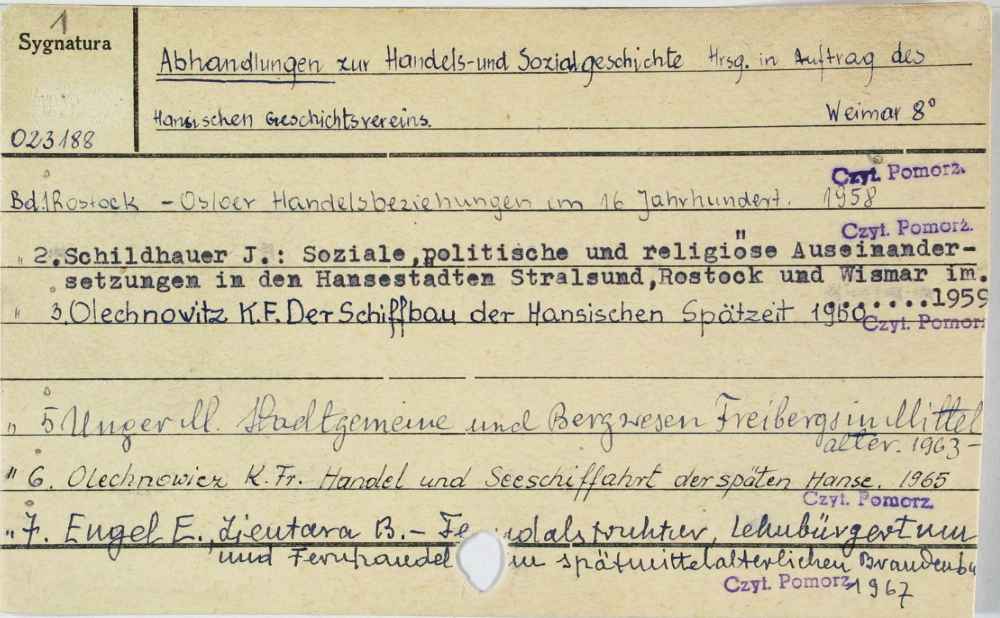 1
Sygnatura
Abhandlungen zur Handels-und Sozialgeschichte Hrsg. in Auftrag des
Hansischen Geschichtsvereins. Weimar 8°
023188
Czyt. Pomorz.
Bd.1 Rostock - Osloer Handelsbeziehungen im 16 Jahrhundert. 1958
Czyt. Pomorz.
" 2. Schildhauer J.: Soziale, politische und religiöse Auseinander-
setzungen in den Hansestadten Stralsund, Rostock und Wismar im.
.......1959
" 3. Olechnovitz K.F. Der Schiffbau der Hansischen Spätzeit 1960
Czyt. Pomorz
" 5 Unger M. Stadtgemeine und Bergwesen Freibergs in Mittel
alter. 1963-
" 6. Olechnowicz K. Fr. Handel und Seeschiffahrt der späten Hanse. 1965
Czyt. Pomorz.
" 7. Engel E., Zientara B. - Fe dalstruktur, Lehnbürgertum
und Fernhandel im spätmittelalterlichen Brandenbu
Czyt. Pomorz. 1967